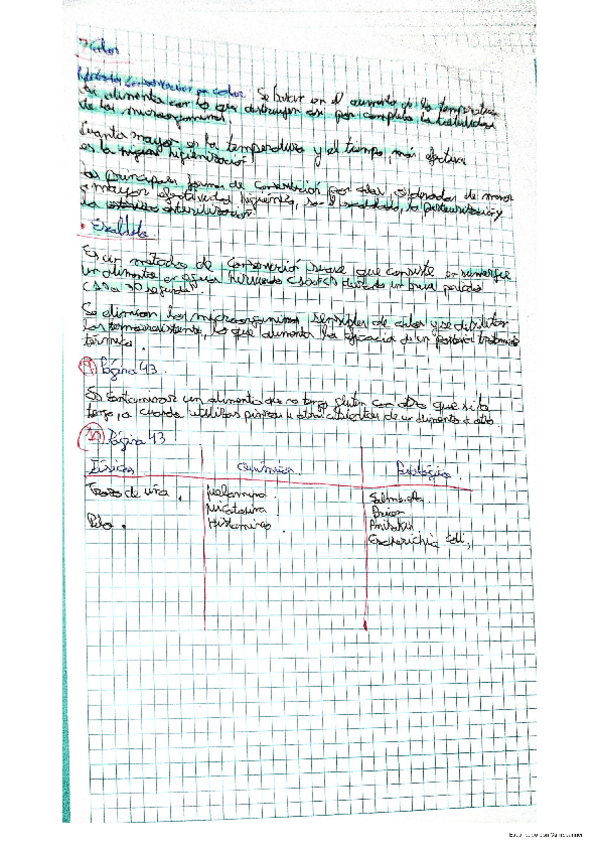 Calor
Conservación por calor. Se basa en el aumento de la temperatura
de alimentos con lo que destruyen casi por completo la totalidad
de los microorganismos.
Cuanta mayor es la temperatura y el tiempo, más efectiva
es la higienización.
Las principales formas de conservación por calor, ordenadas de menor
a mayor efectividad higiénica, son el escaldado, la pasteurización y
la esterilización.
• Escaldado.
Es un método de conservación suave que consiste en sumergir
un alimento en agua hirviendo (100ºC) durante un breve periodo
(30 segundos).
Se eliminan los microorganismos sensibles de calor y se debilitan
los termorresistentes, lo que aumenta la eficacia de un posterior tratamiento
térmico.
Página 43.
Es contaminar un alimento que no tenga gluten con otro que si lo
tenga, o cuando utilizas pinzas u otros utensilios de un alimento a otro
Página 43
Físicos Químicos Biológico.
Trozo de uña. Melamina. Salmonella.
Micotoxina Prion
Pelo. Histamina. Anisakis.
Escherichia coli,